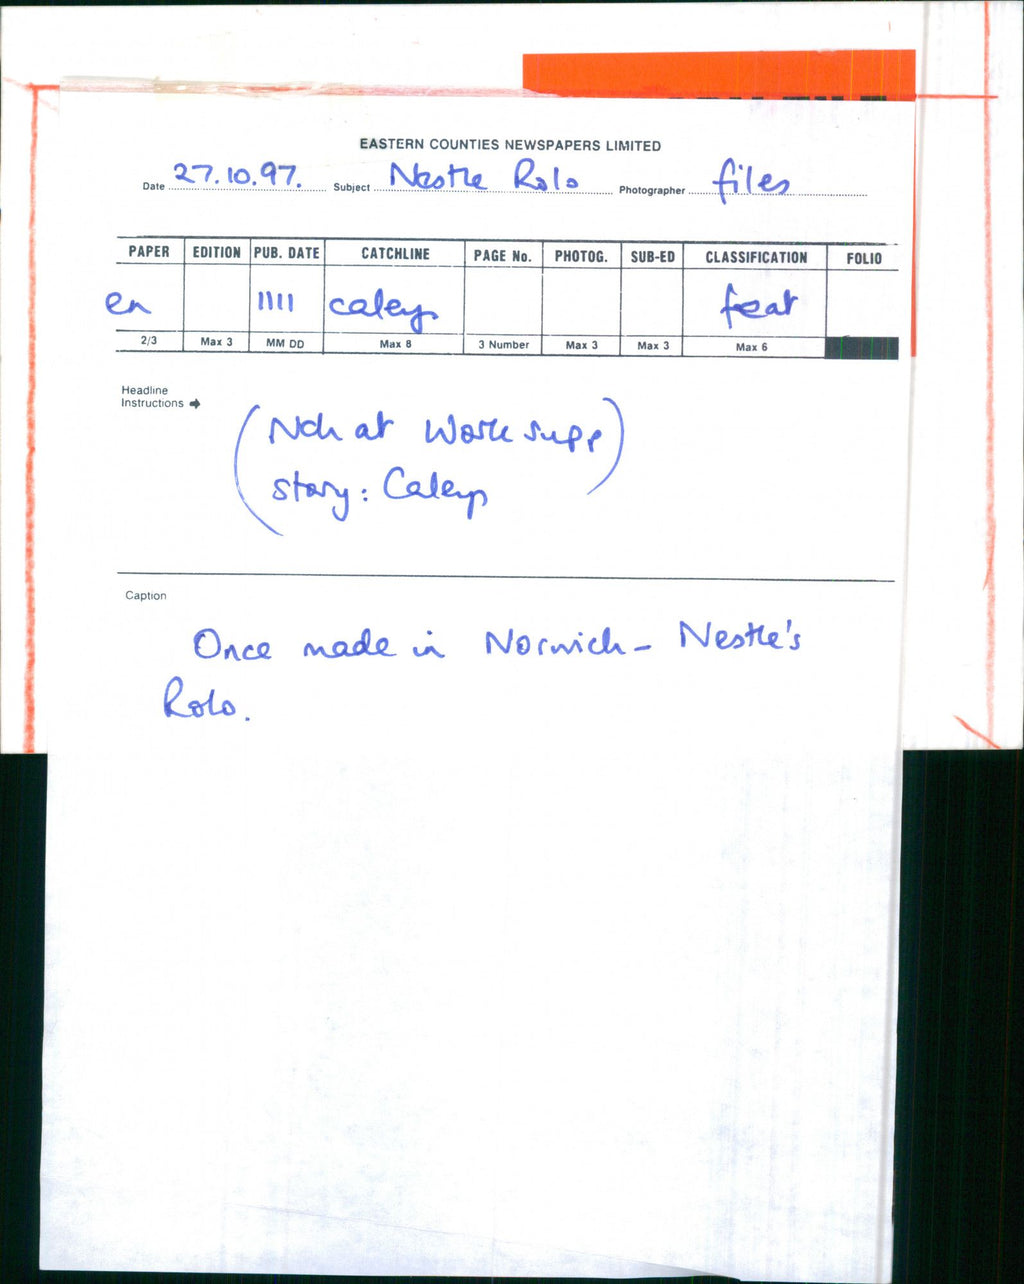 EASTERN COUNTIES NEWSPAPERS LIMITED
Date 27.10.97. Subject Nestle Rolo Photographer files
PAPER EDITION PUB. DATE CATCHLINE PAGE No. PHOTOG. SUB-ED CLASSIFICATION FOLIO
en 1111 caleys feat
2/3 Max 3 MM DD Max 8 3 Number Max 3 Max 3 Max 6
Headline
Instructions →
(Nch at Work supp
story: Caleys)
Caption
Once made in Norwich - Nestle's
Rolo.